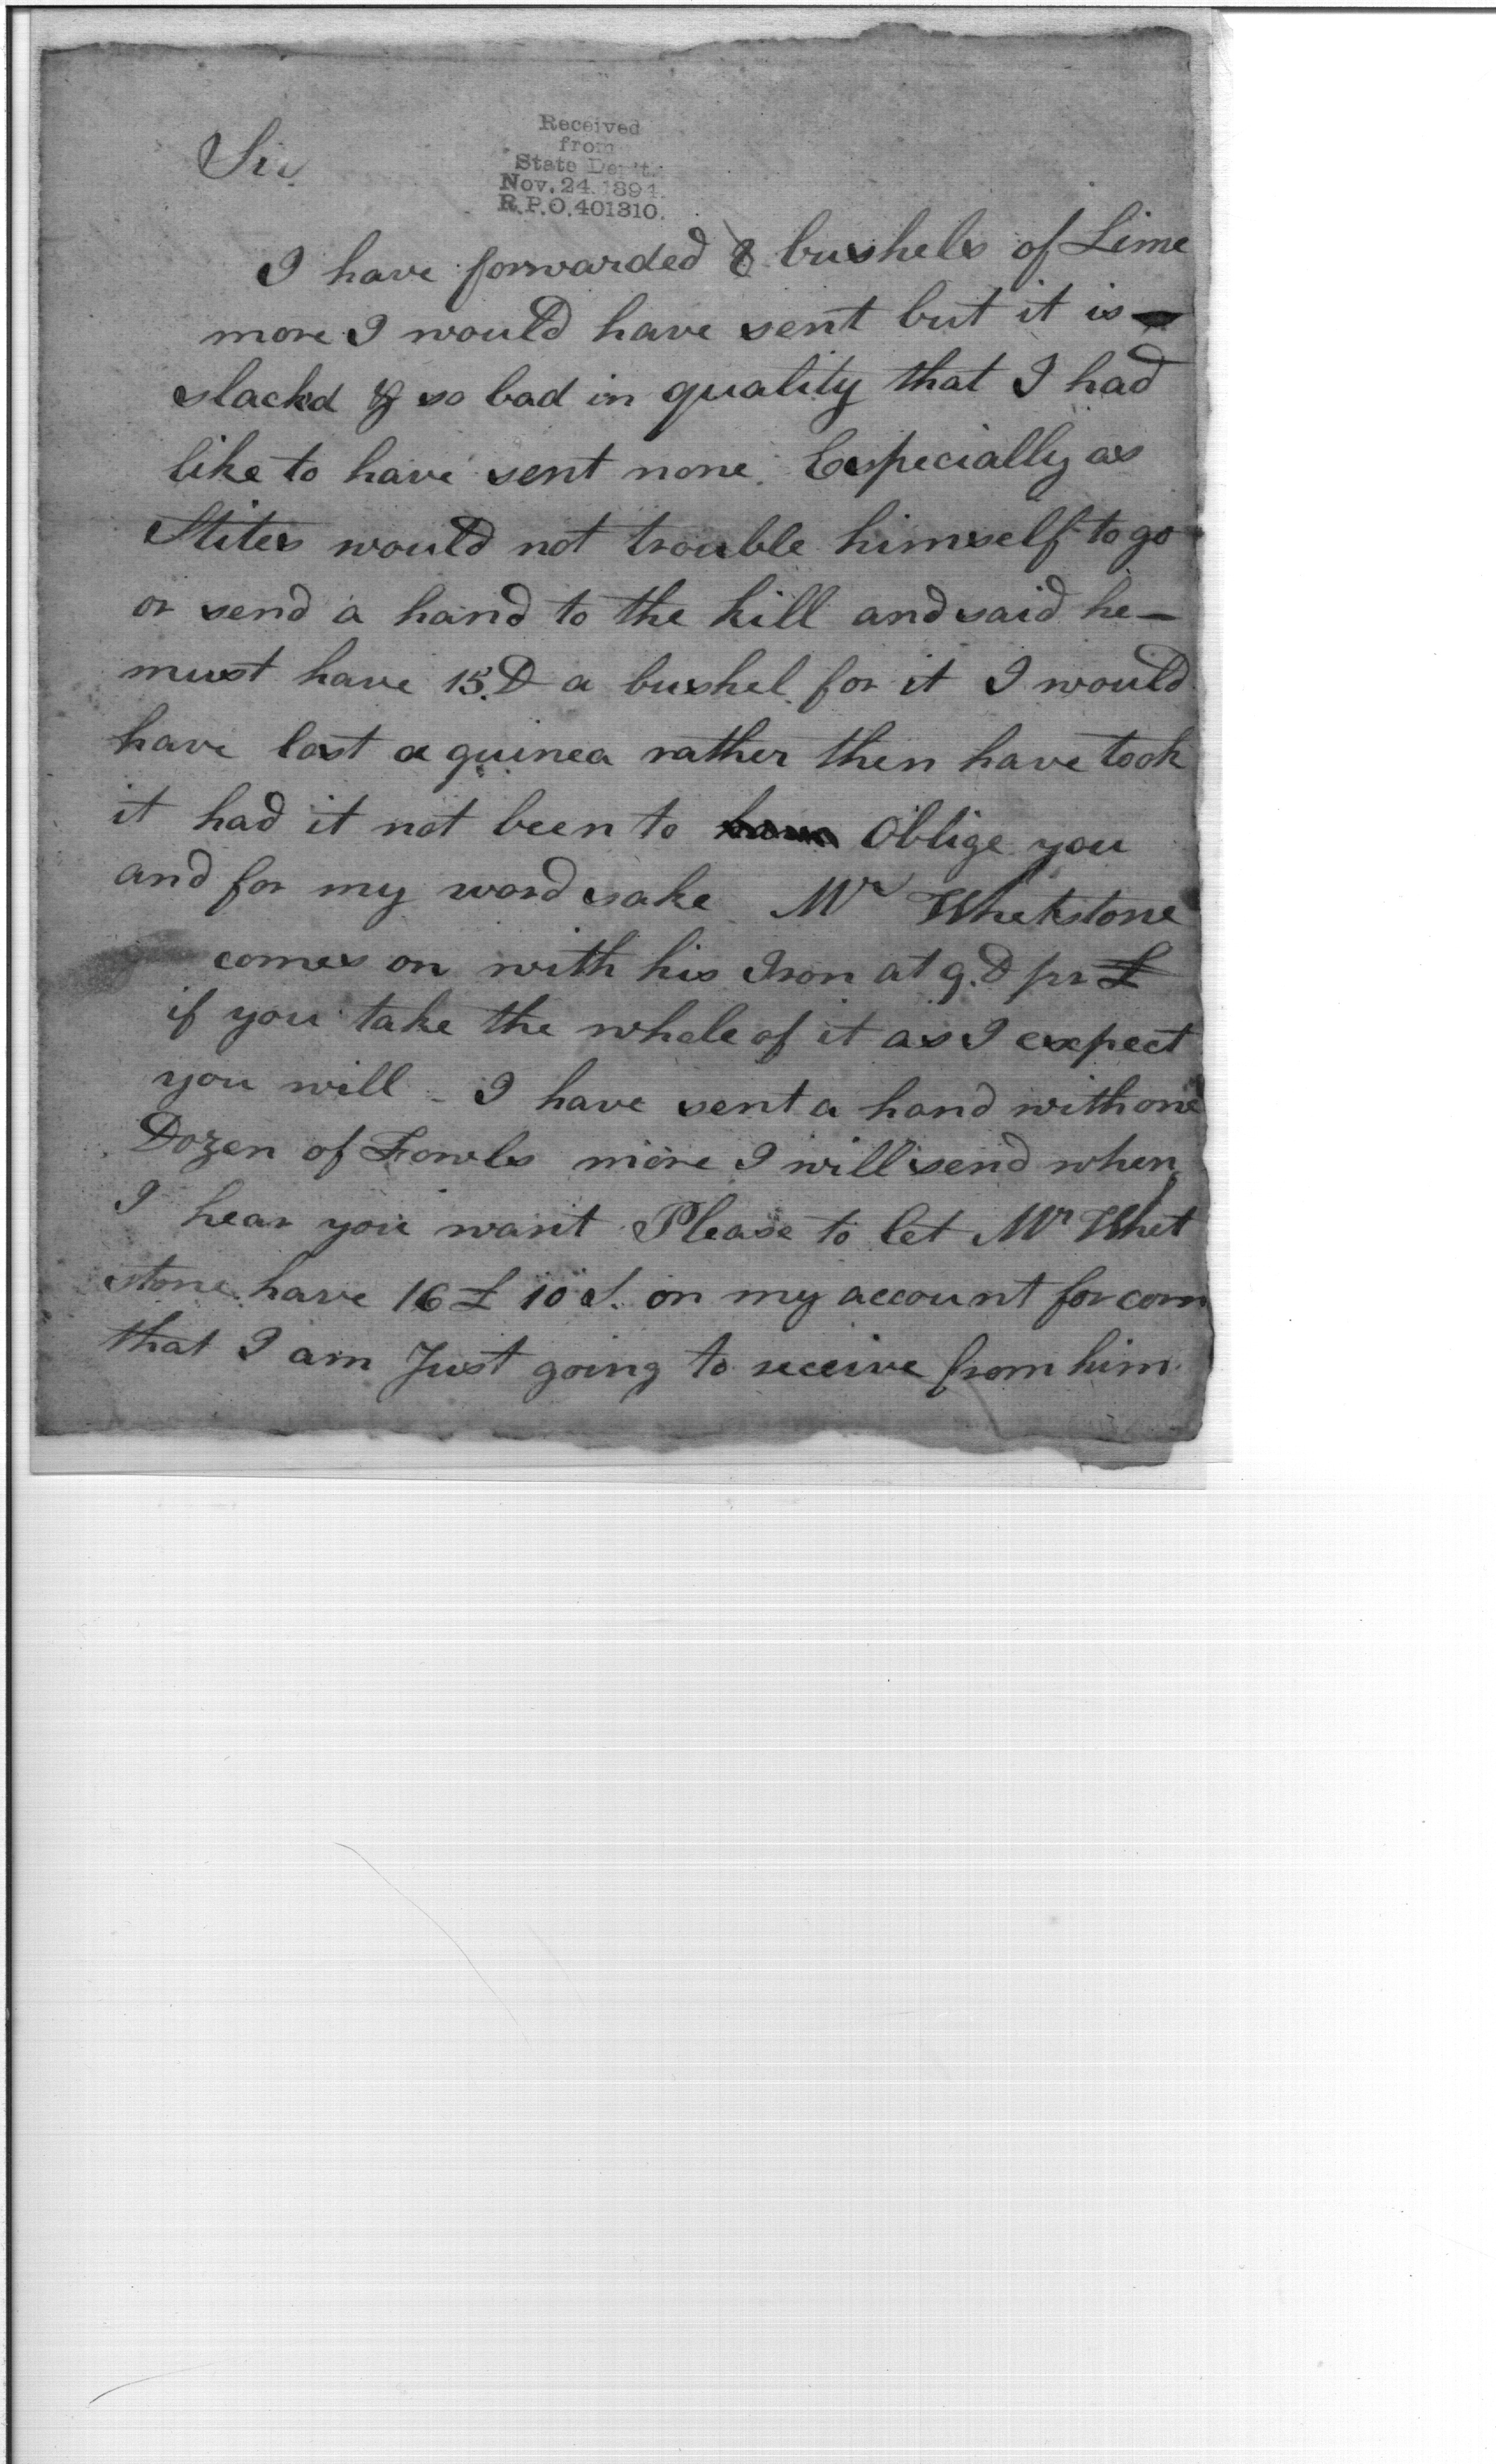 Sir
Received
from
State Dep't.
Nov. 24. 1894.
R.P.O. 401310.
I have forwarded 8 bushels of Lime
more I would have sent but it is
slackd & so bad in quality that I had
like to have sent none. Especially as
Stites would not trouble himself to go
or send a hand to the kill and said he—
must have 15.D a bushel for it I would
have lost a guinea rather then have took
it had it not been to Oblige you
and for my word sake Mr Whetstone
comes on with his Iron at 9.D pr £
if you take the whole of it as I expect
you will - I have sent a hand with one
Dozen of Fowls more I will send when
I hear you want Please to let Mr Whet
stone have 16 £ 10 S. on my account for corn
that I am Just going to receive from him.